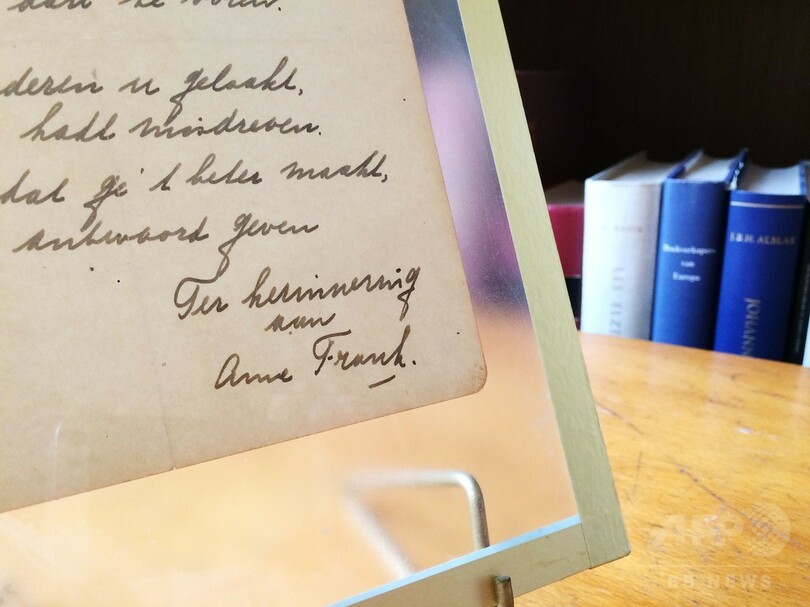 aan te voren.
deren u gelaakt,
hadt misdreven.
dat ge 't beter maakt,
antwoord geven
Ter herinnering
aan
Anne Frank.
Boekverkopers
van
Europa
J.B.H. ALBLAS
JOHANN
AFP
BB NEWS